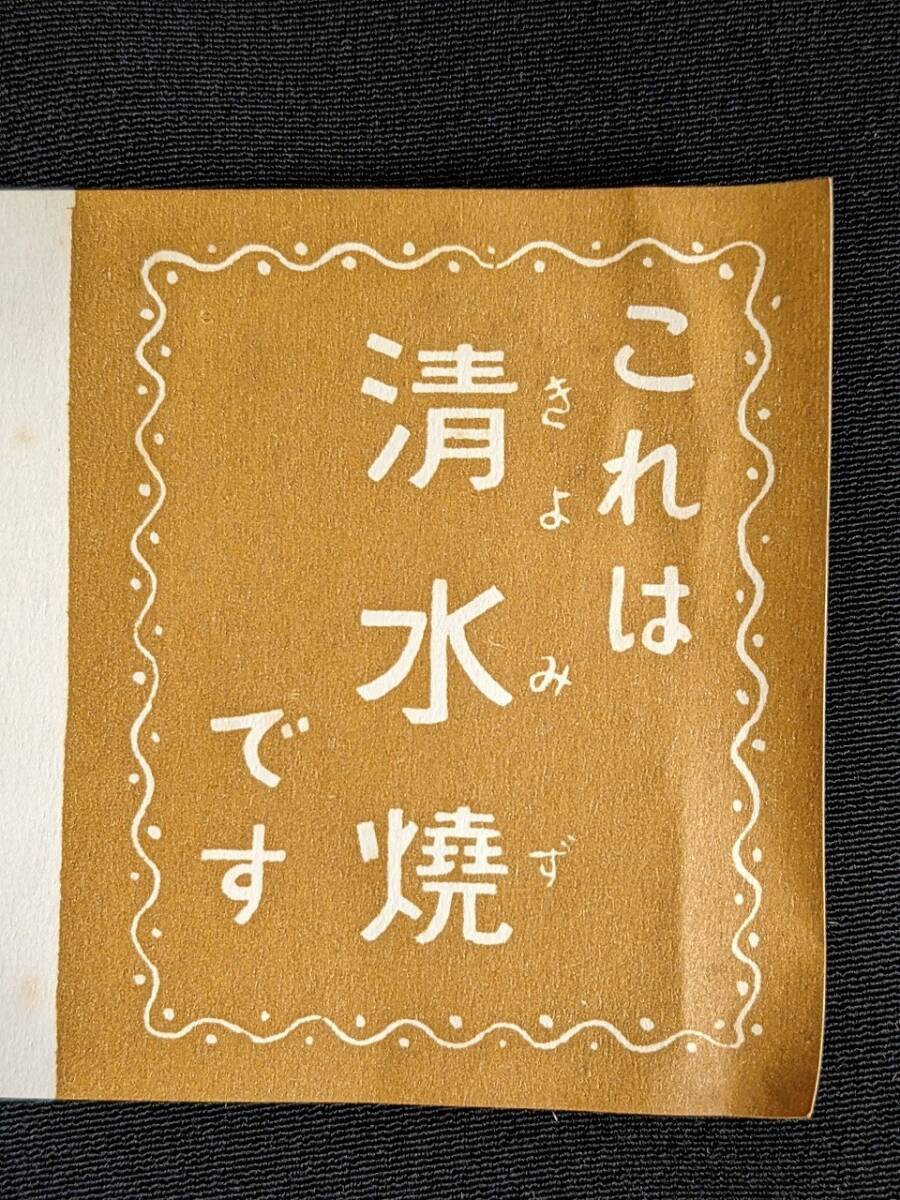 これは
清水燒
きよみず
です